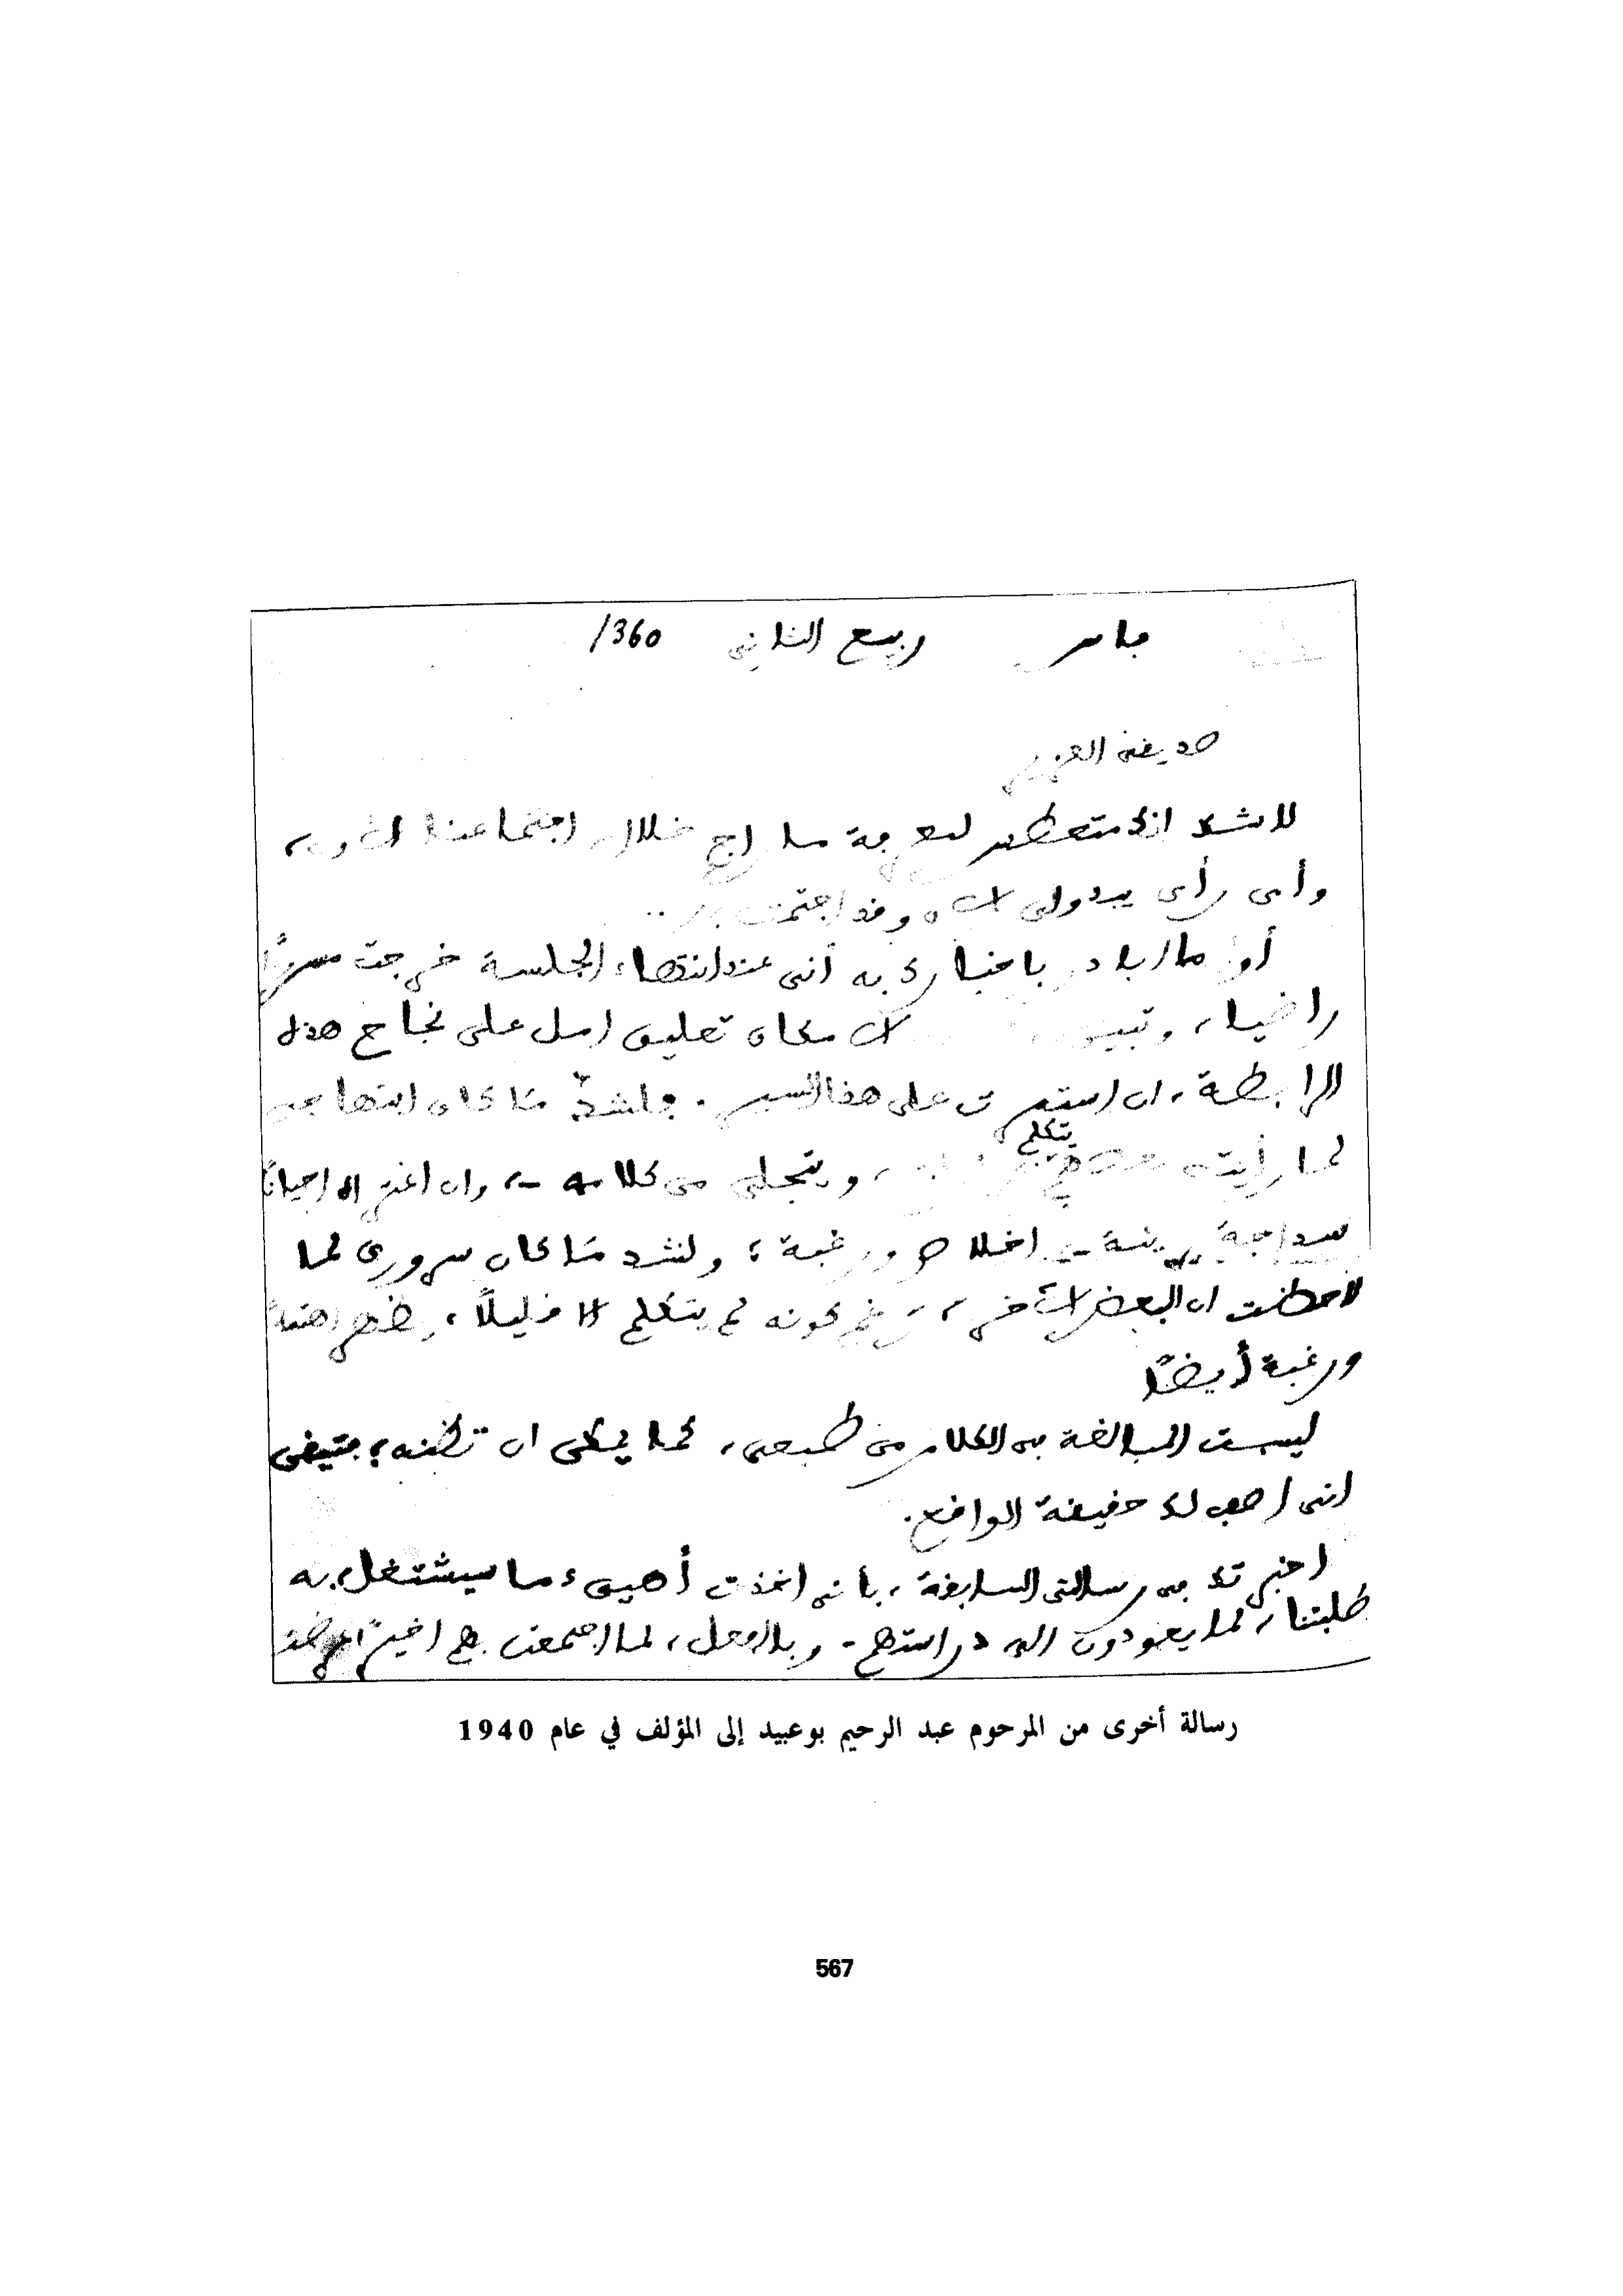 فاس ربيع الثاني 360/
صديقي العزيز
لا شك انك متعطش لمعرفة ما راج خلال اجتماعنا
وأي رأي يبدو لي الآن وقد اجتمعت
أول ما ابادر باخبارك به أنني عند انتهاء الجلسة خرجت مسروراً
راضيا، وتبين لي الآن مكان تعليق امل على نجاح هذه
الرابطة، ان استمرت على هذا السير. فلشدّ ما كان ابتهاجي
لما رأيت يتكلم، ويتجلى من كلامه -، وان اعتراه احياناً
سذاجة - اخلاص ورغبة؛ ولشد ما كان سروري لما
لاحظت ان البعض الآخر، رغم كونه لم يتكلم الا قليلاً، يظهر اهتماماً
ورغبة أيضاً
ليست المبالغة في الكلام من طبعي، كما يمكن ان تظنه؛ فتيقن
انني اصف لك حقيقة الواقع.
اخبرتك في رسالتي السابقة، بأني اخذت أهيىء ما سيشتغل به
طلبتنا، لما يعودون الى دراستهم - وبالفعل، لما اجتمعت بهم اخيراً
رسالة أخرى من المرحوم عبد الرحيم بوعبيد إلى المؤلف في عام 1940
567